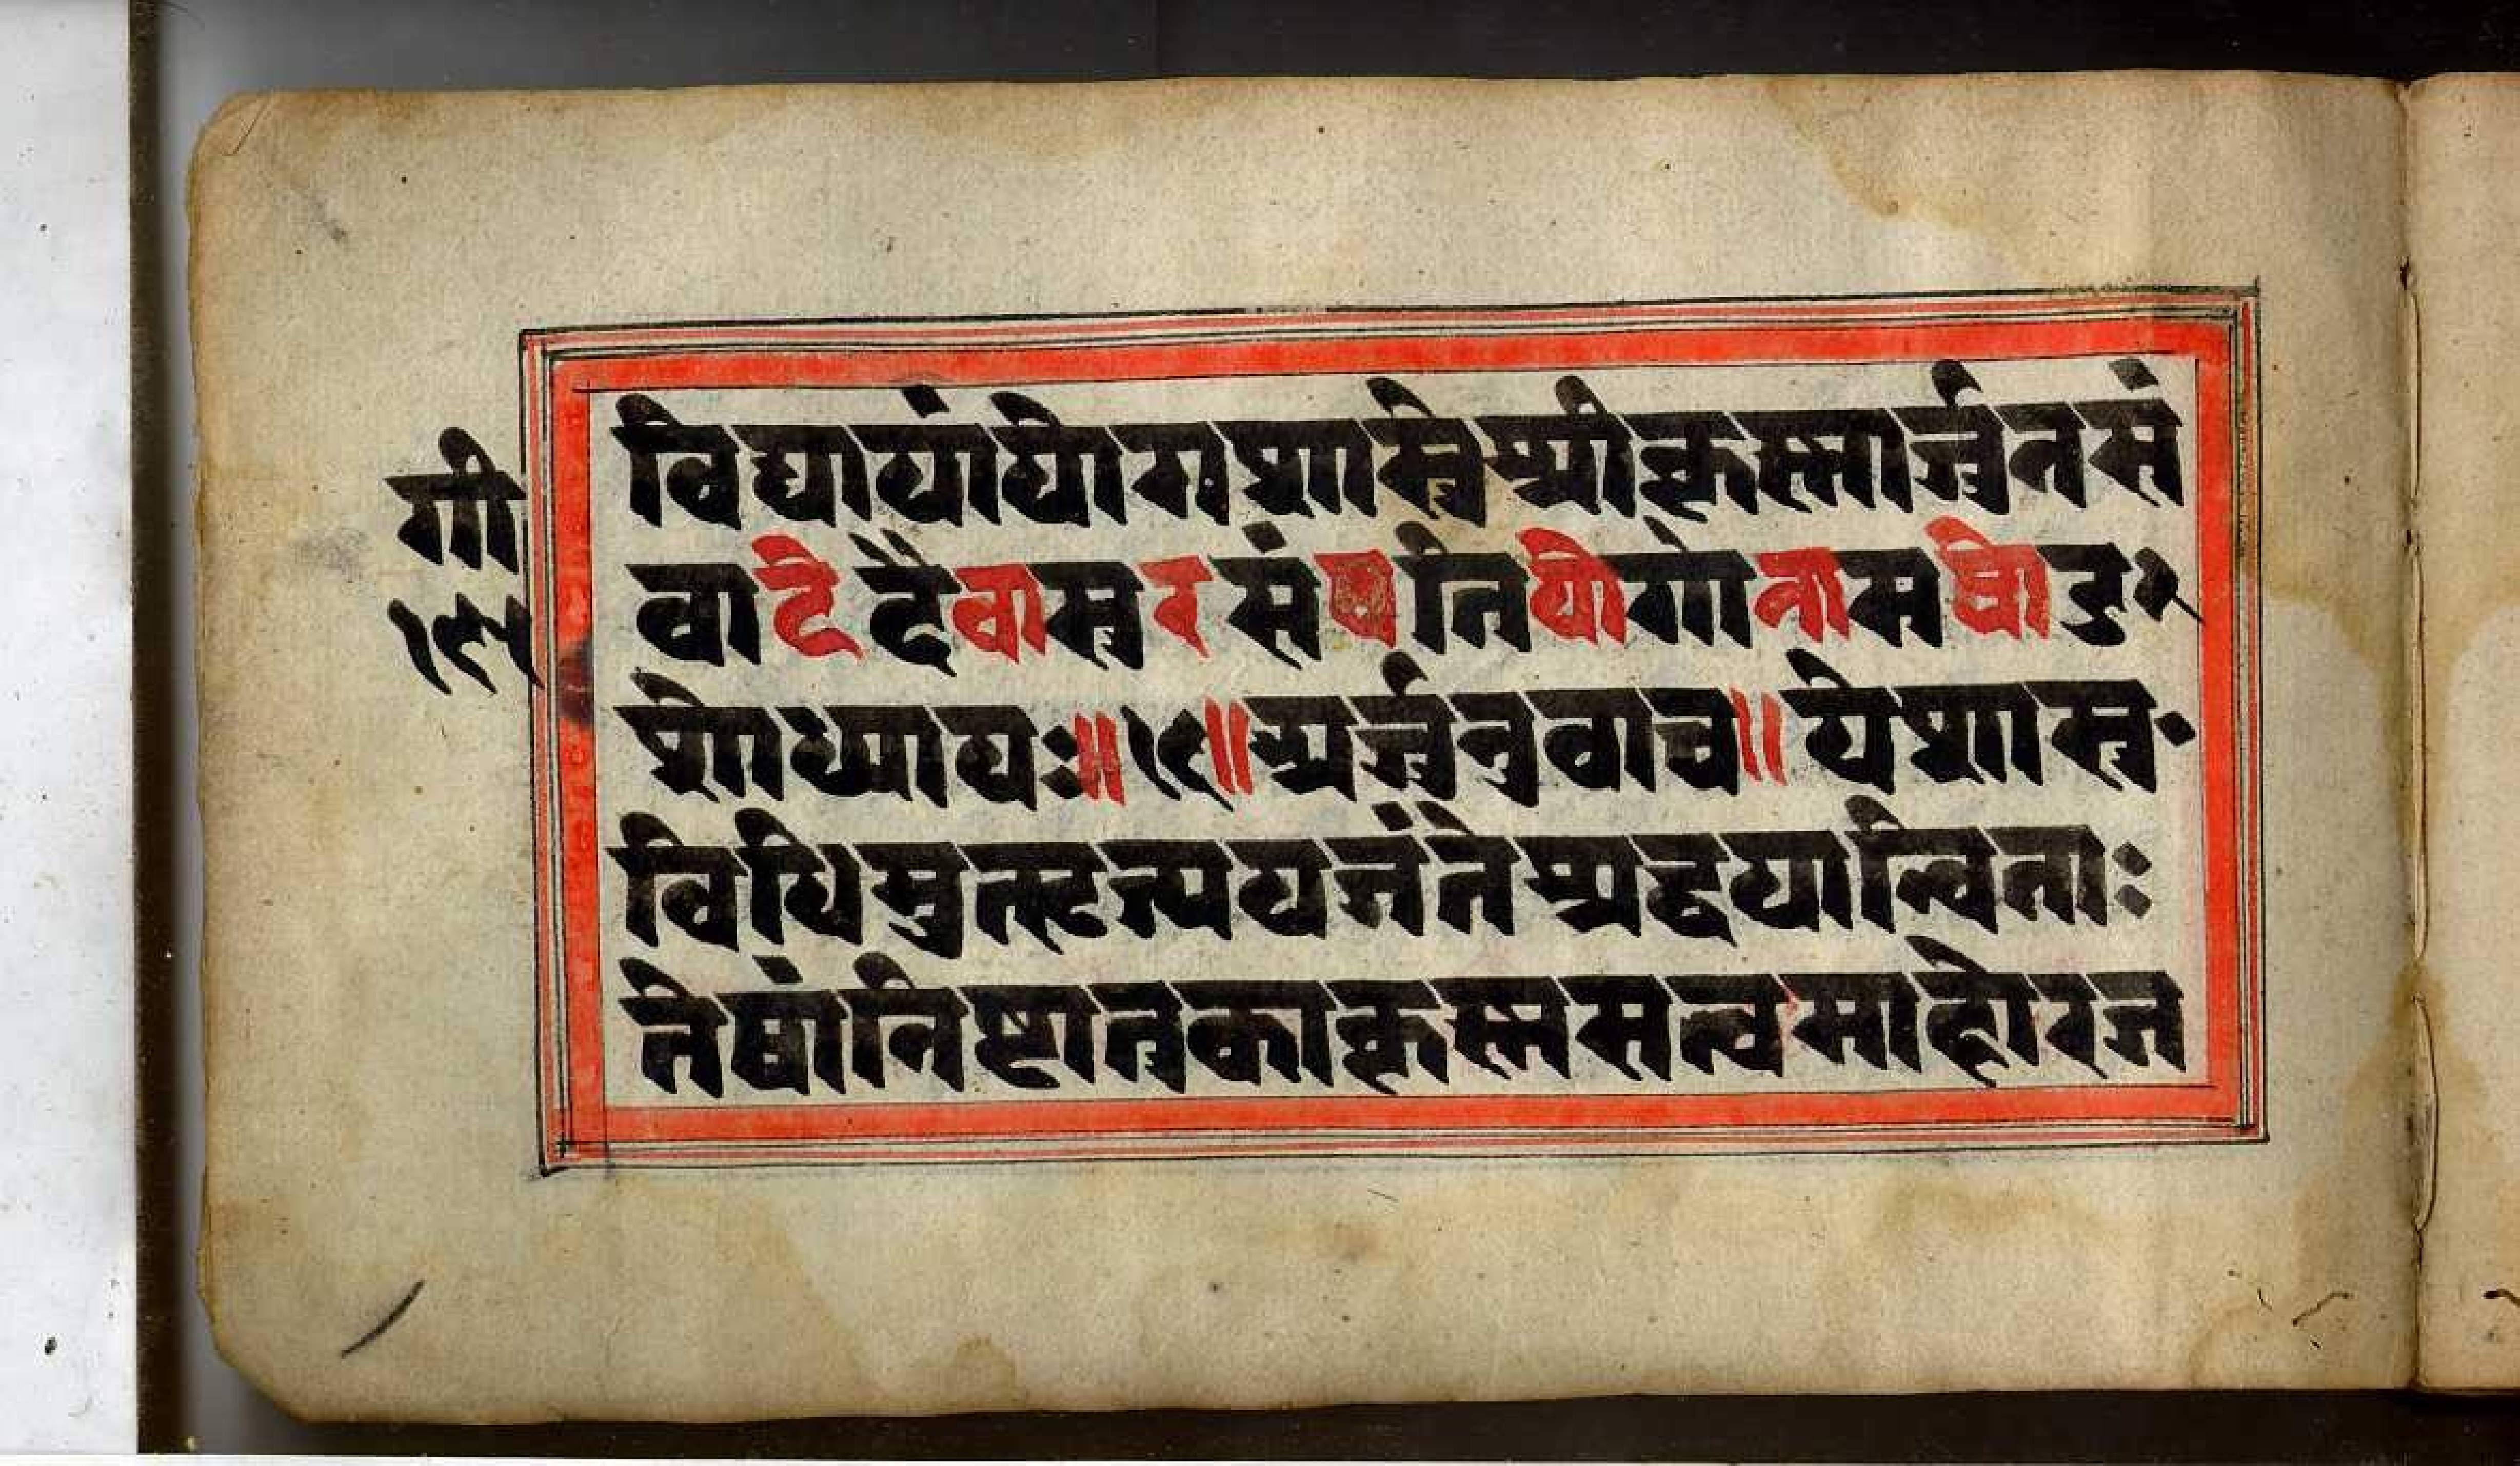 गी
१९५
विद्यायांयोगशास्त्रेश्रीकृस्नार्जुनसं
वादेदैवासुरसंपतियोगोनामषोड
शोध्यायः॥१६॥अर्जुनुवाच॥येशास्त्र
विधिमुत्सृज्ययजंतेश्रद्धयान्विताः
तेषांनिष्टातुकाकृस्नसत्वमाहोरज